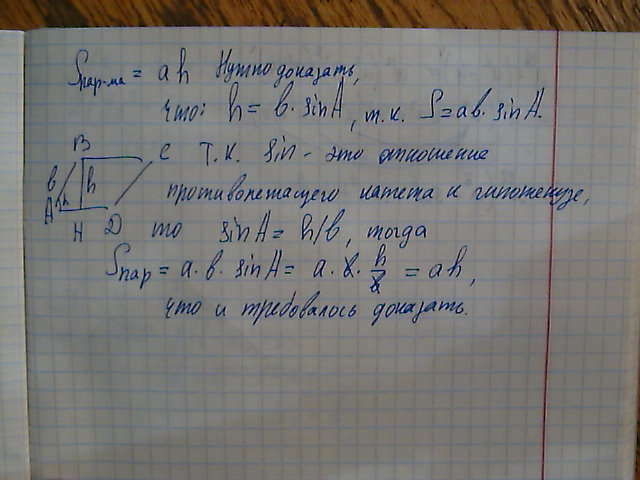 Sпар-ма = ah Нужно доказать,
что: h = b · sinA, т.к. S = ab · sinA.
B
C Т.к. sin - это отношение
b h
противолежащего катета к гипотенузе,
A
H D то sinA = h/b, тогда
Sпар = a · b · sinA = a · b · h/b = ah,
что и требовалось доказать.